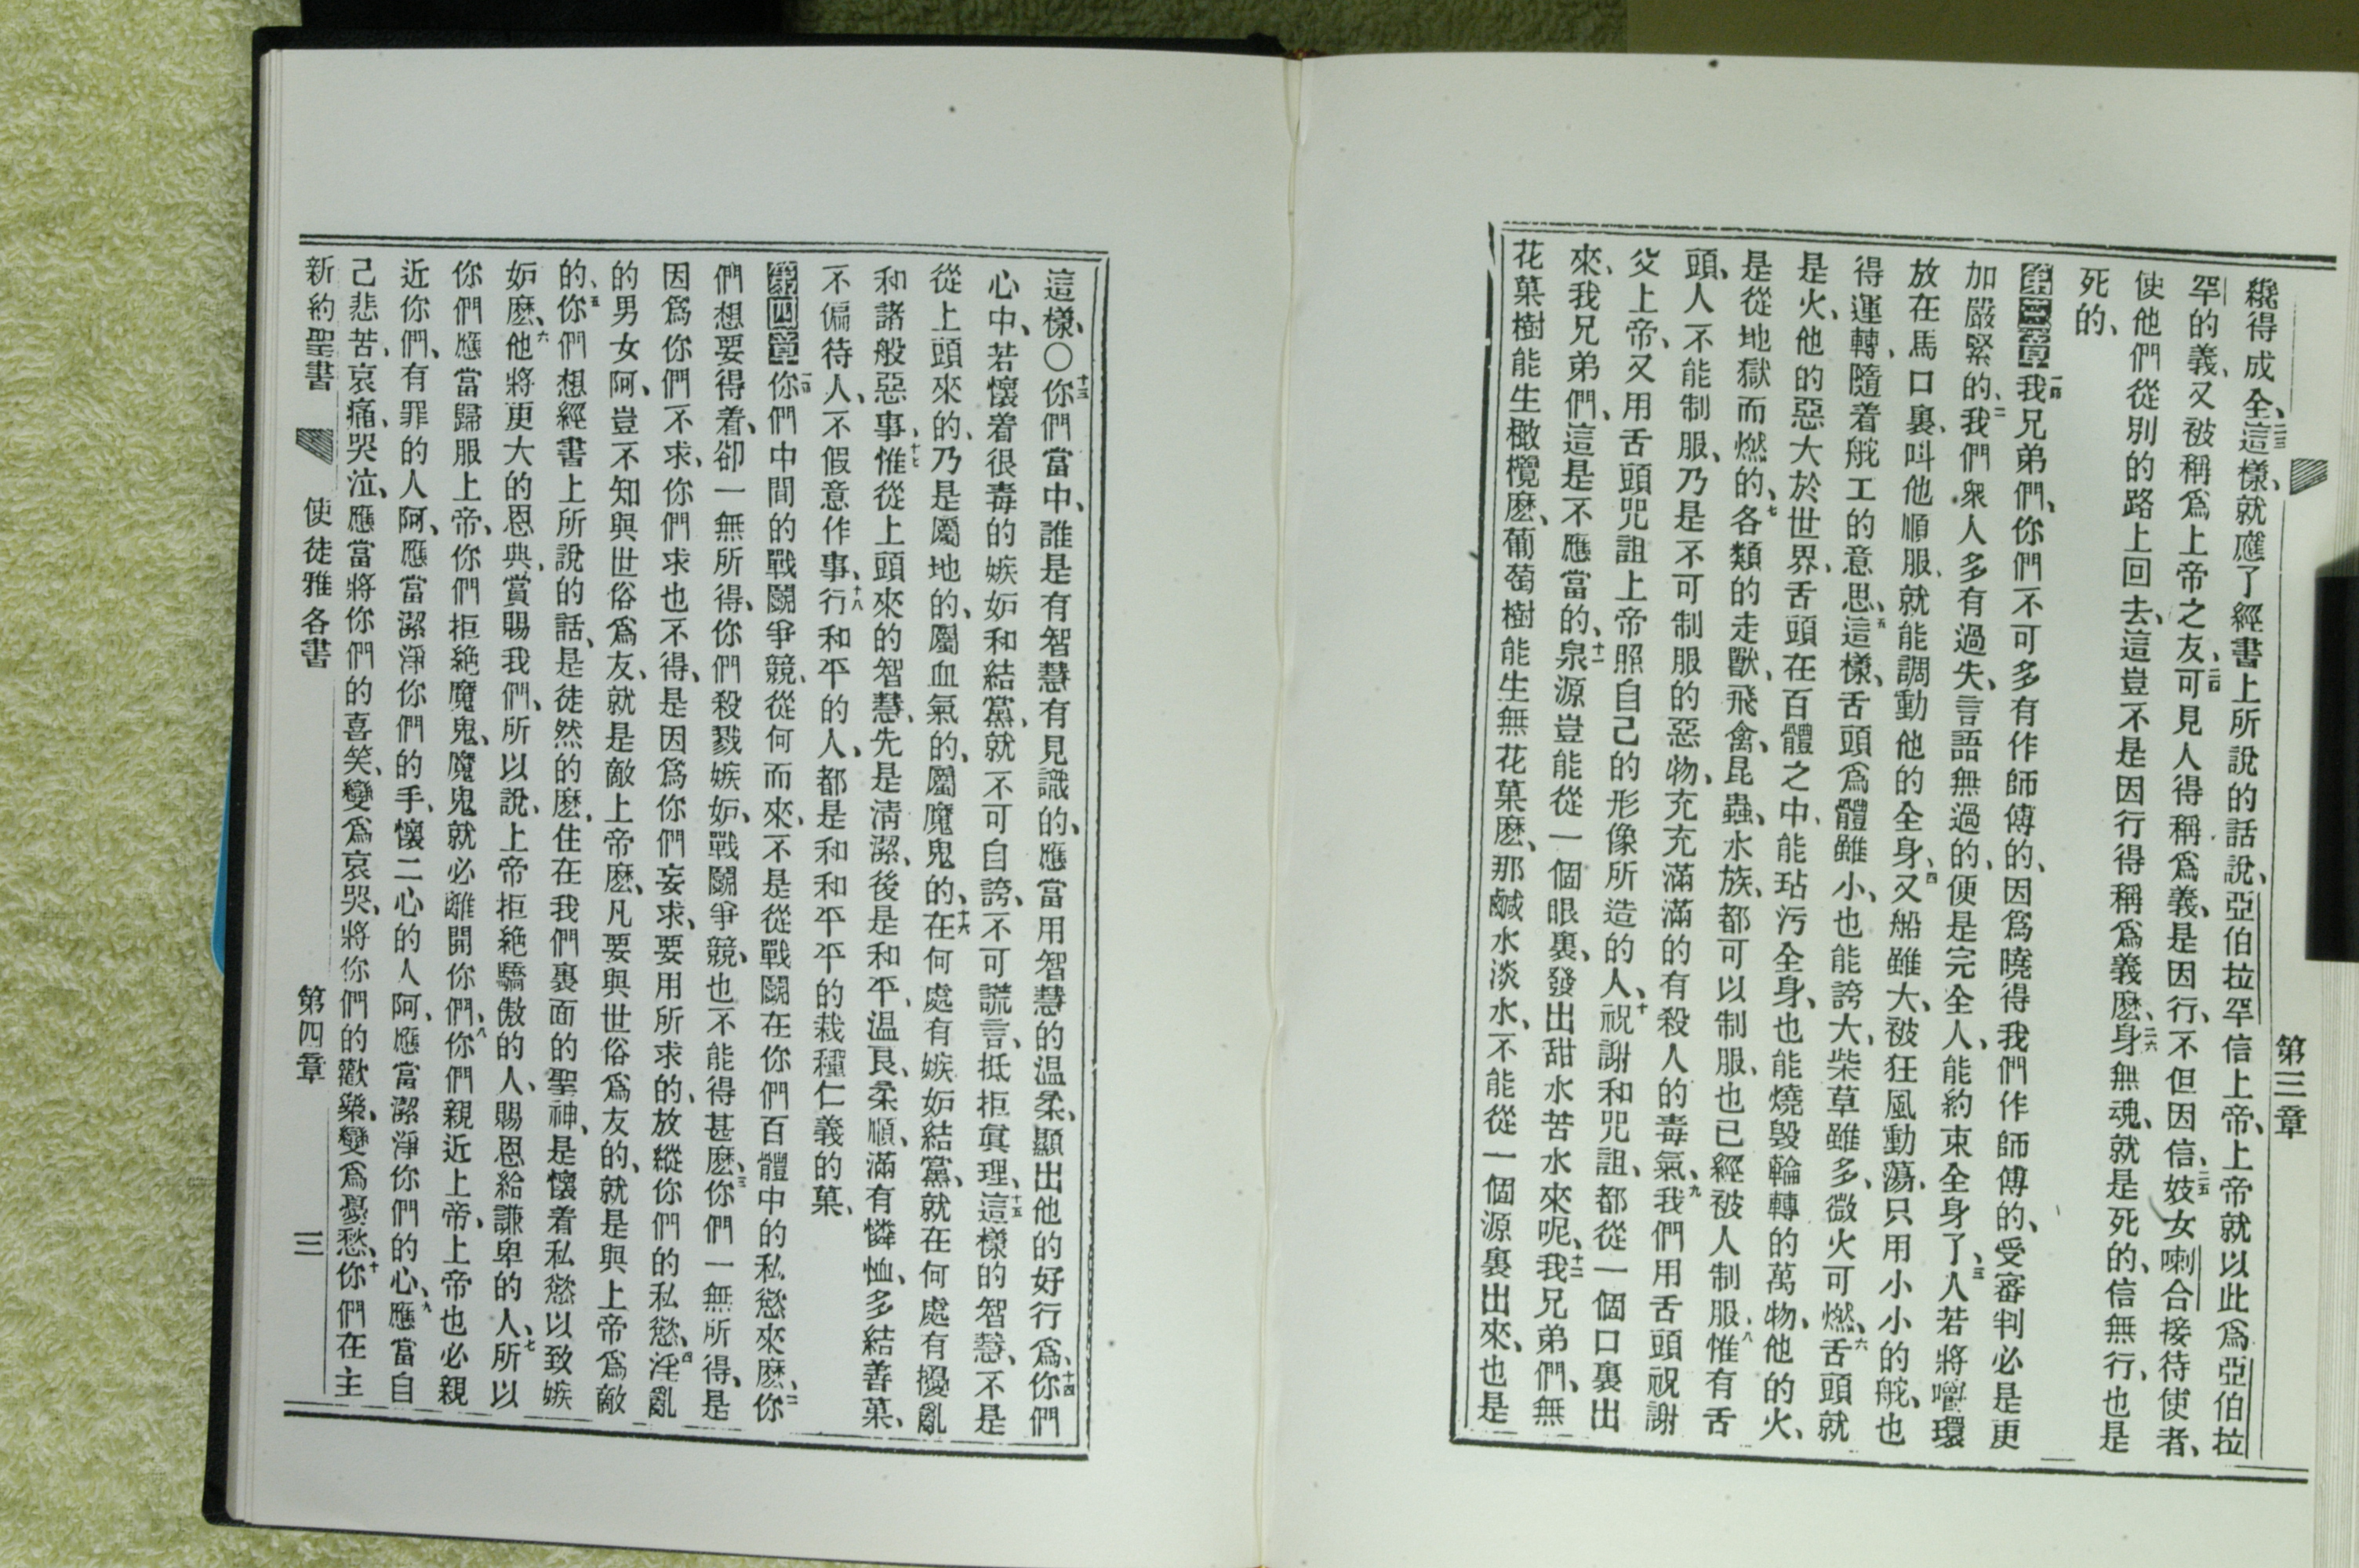 第三章
纔得成全、二三這樣、就應了經書上所說的話說、亞伯拉罕信上帝、上帝就以此爲亞伯拉
罕的義、又被稱爲上帝之友、二四可見人得稱爲義、是因行、不但因信、二五妓女喇合接待使者、
使他們從別的路上回去、這豈不是因行得稱爲義麽、二六身無魂、就是死的、信無行、也是
死的、
第三章 一我兄弟們、你們不可多有作師傅的、因爲曉得我們作師傅的、受審判必是更
加嚴緊的、二我們衆人多有過失、言語無過的、便是完全人、能約束全身了、三人若將嚼環
放在馬口裏、叫他順服、就能調動他的全身、四又船雖大、被狂風動蕩、只用小小的舵、也
得運轉、隨着舵工的意思、五這樣、舌頭爲體雖小、也能誇大、柴草雖多、微火可燃、六舌頭就
是火、他的惡大於世界、舌頭在百體之中、能玷污全身、也能燒毀輪轉的萬物、他的火、
是從地獄而燃的、七各類的走獸、飛禽、昆蟲、水族、都可以制服、也已經被人制服、八惟有舌
頭、人不能制服、乃是不可制服的惡物、充充滿滿的有殺人的毒氣、九我們用舌頭祝謝
父上帝、又用舌頭咒詛上帝照自己的形像所造的人、十祝謝和咒詛、都從一個口裏出
來、我兄弟們、這是不應當的、十一泉源豈能從一個眼裏、發出甜水苦水來呢、十二我兄弟們、無
花菓樹能生橄欖麽、葡萄樹能生無花菓麽、那鹹水淡水、不能從一個源裏出來、也是
這樣、〇十三你們當中、誰是有智慧有見識的、應當用智慧的温柔、顯出他的好行爲、十四你們
心中、若懷着很毒的嫉妬和結黨、就不可自誇、不可謊言、抵拒眞理、十五這樣的智慧、不是
從上頭來的、乃是屬地的、屬血氣的、屬魔鬼的、十六在何處有嫉妬結黨、就在何處有擾亂
和諸般惡事、十七惟從上頭來的智慧、先是清潔、後是和平、温良、柔順、滿有憐恤、多結善菓、
不偏待人、不假意作事、十八行和平的人、都是和和平平的栽種仁義的菓、
第四章 一你們中間的戰鬭爭競、從何而來、不是從戰鬭在你們百體中的私慾來麽、二你
們想要得着、卻一無所得、你們殺戮嫉妬、戰鬭爭競、也不能得甚麽、三你們一無所得、是
因爲你們不求、你們求也不得、是因爲你們妄求、要用所求的、放縱你們的私慾、四淫亂
的男女阿、豈不知與世俗爲友、就是敵上帝麽、凡要與世俗爲友的、就是與上帝爲敵
的、五你們想經書上所說的話、是徒然的麽、住在我們裏面的聖神、是懷着私慾以致嫉
妬麽、六他將更大的恩典、賞賜我們、所以說、上帝拒絶驕傲的人、賜恩給謙卑的人、七所以
你們應當歸服上帝、你們拒絶魔鬼、魔鬼就必離開你們、八你們親近上帝、上帝也必親
近你們、有罪的人阿、應當潔淨你們的手、懷二心的人阿、應當潔淨你們的心、九應當自
己悲苦、哀痛、哭泣、應當將你們的喜笑、變爲哀哭、將你們的歡樂、變爲憂愁、十你們在主
新約聖書 使徒雅各書 第四章 三